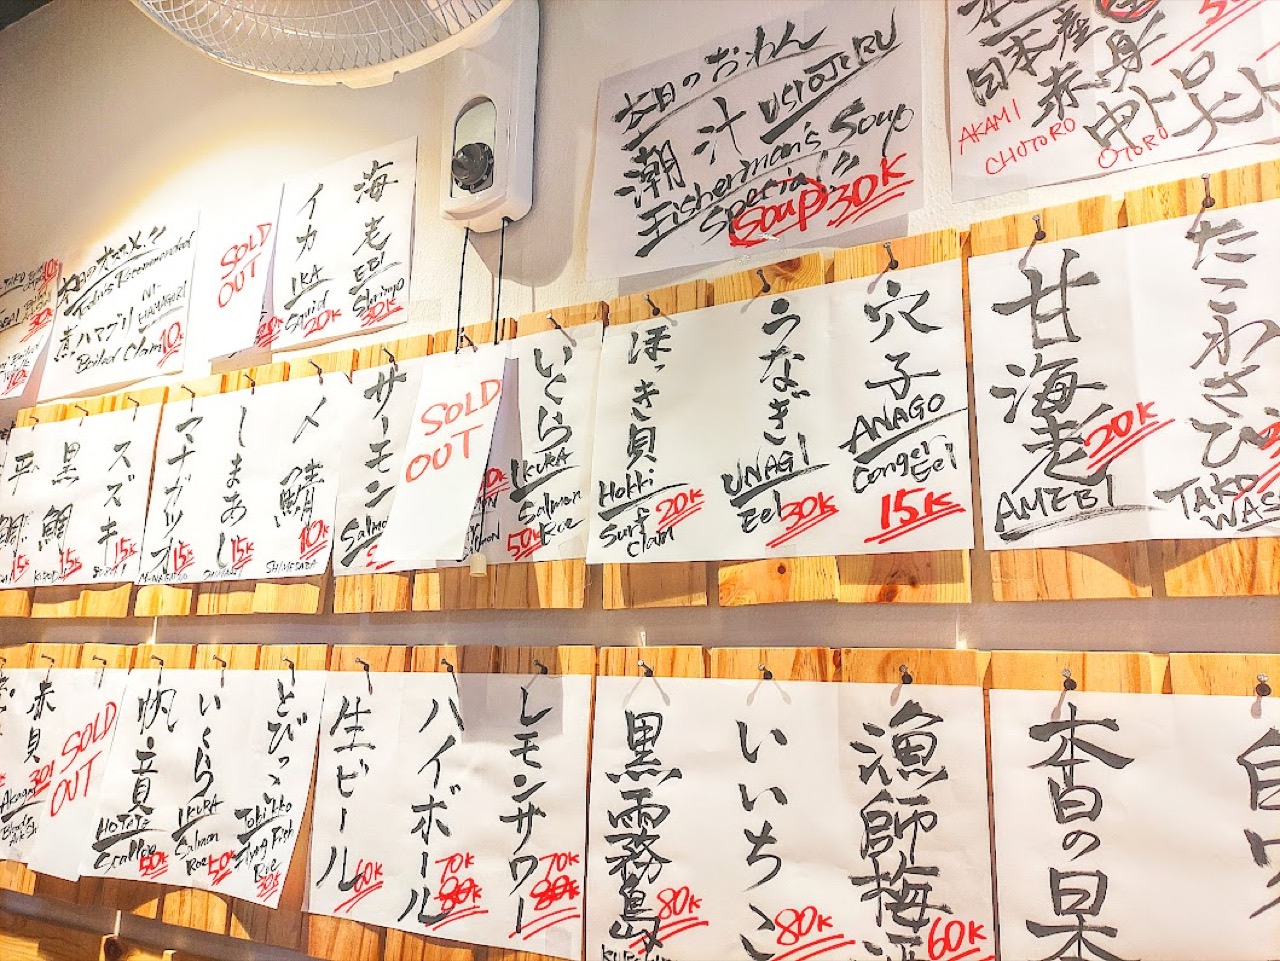 本日のおわん
潮汁 USIOJIRU
Fisherman's Soup
Special
Soup 30K
日本産
赤身
中トロ
AKAMI
CHUTORO
OTORO
海老
EBI
Shrimp
30K
イカ
IKA
Squid
20K
SOLD
OUT
Recommended
煮ハマグリ
NI-
HAMAGURI
Boiled Clam
10K
たこわさび
TAKO
WAS
甘海老
20K
AMEBI
穴子
ANAGO
Conger
Eel
15K
うなぎ
UNAGI
Eel
30K
ほっき貝
Hokki
Surf
Clam
20K
いくら
IKURA
Salmon
Roe
50K
SOLD
OUT
サーモン
Salmo
〆鯖
10K
SHIMESABA
しまあじ
15K
マナガツオ
15K
スズキ
15K
黒鯛
15K
平
鯛
15K
本日の日本
漁師梅酒
60K
いいちこ
80K
黒霧島
80K
レモンサワー
70K
80K
ハイボール
70K
80K
生ビール
60K
とびっこ
Tobikko
Flying Fish
Roe
30K
いくら
IKURA
Salmon
Roe
50K
帆立貝
HOTATE
Scallop
50K
SOLD
OUT
赤貝
Akagai